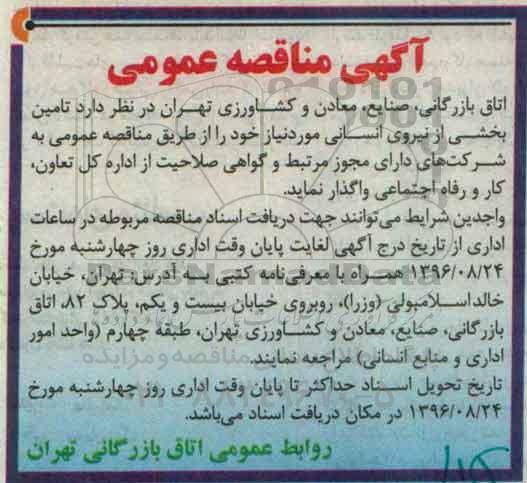 آگهی مناقصه عمومی
اتاق بازرگانی، صنایع، معادن و کشاورزی تهران در نظر دارد تامین
بخشی از نیروی انسانی موردنیاز خود را از طریق مناقصه عمومی به
شرکت‌های دارای مجوز مرتبط و گواهی صلاحیت از اداره کل تعاون،
کار و رفاه اجتماعی واگذار نماید.
واجدین شرایط می‌توانند جهت دریافت اسناد مناقصه مربوطه در ساعات
اداری از تاریخ درج آگهی لغایت پایان وقت اداری روز چهارشنبه مورخ
۱۳۹۶/۰۸/۲۴ همراه با معرفی‌نامه کتبی به آدرس: تهران، خیابان
خالداسلامبولی (وزرا)، روبروی خیابان بیست و یکم، پلاک ۸۲، اتاق
بازرگانی، صنایع، معادن و کشاورزی تهران، طبقه چهارم (واحد امور
اداری و منابع انسانی) مراجعه نمایند.
تاریخ تحویل اسناد حداکثر تا پایان وقت اداری روز چهارشنبه مورخ
۱۳۹۶/۰۸/۲۴ در مکان دریافت اسناد می‌باشد.
روابط عمومی اتاق بازرگانی تهران